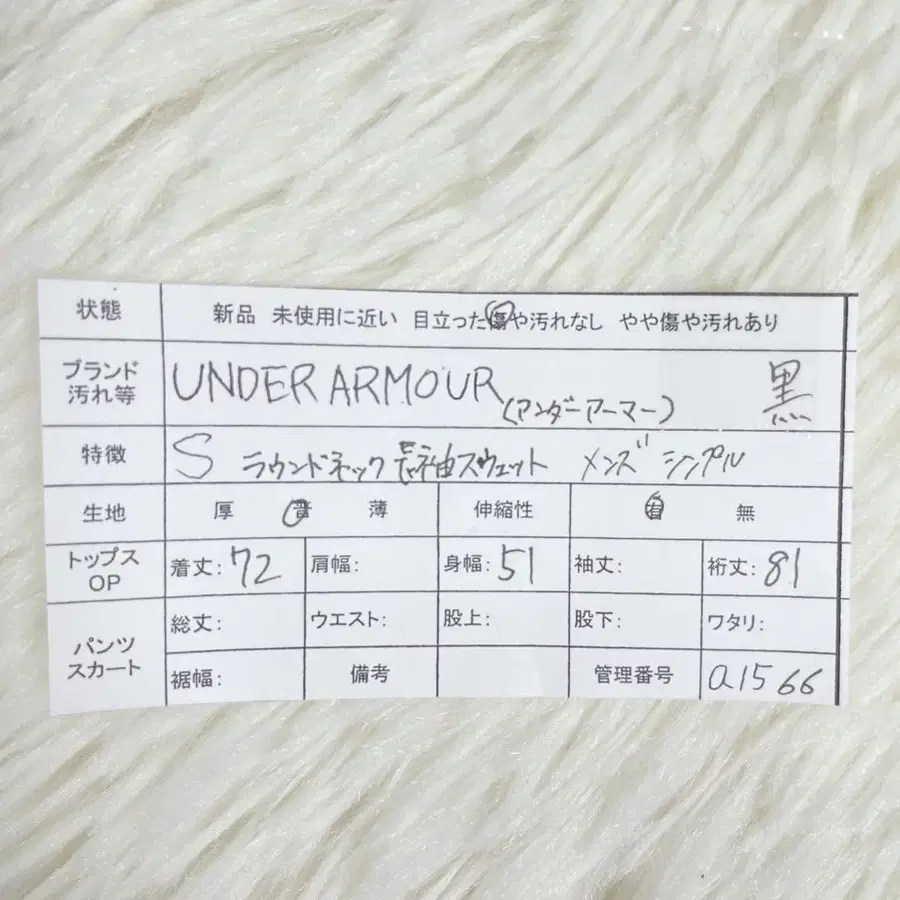 状態 新品 未使用に近い 目立った傷や汚れなし やや傷や汚れあり
ブランド 汚れ等 UNDER ARMOUR (アンダーアーマー) 黒
特徴 S ラウンドネック 長袖スウェット メンズ シンプル
生地 厚 普 薄 伸縮性 有 無
トップス OP 着丈:72 肩幅: 身幅:51 袖丈: 裄丈:81
パンツ スカート 総丈: ウエスト: 股上: 股下: ワタリ:
裾幅: 備考 管理番号 a1566